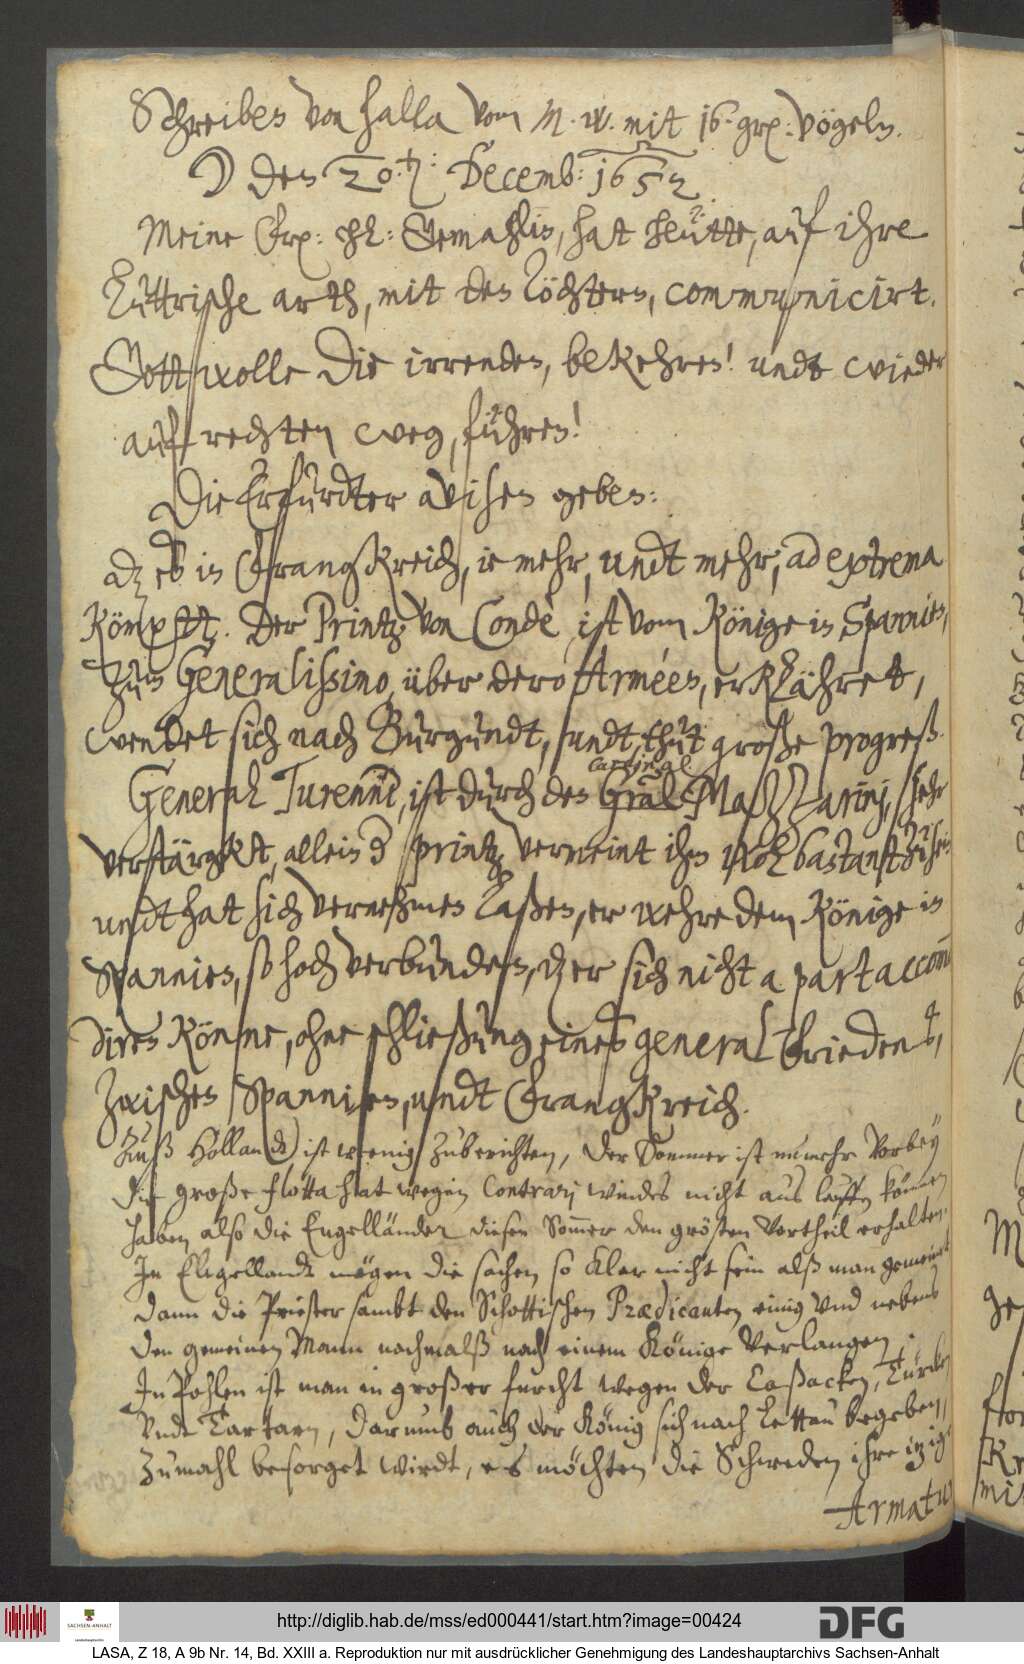 Schreiben von Halla vom M. W. mit 16. grx: vögeln.
☽ den 20.ten: Decemb: 1652.
Meine Frx: hl: Gemahlin, hat heütte, auf ihre
Luttrische arth, mit den Töchtern, communicirt.
Gott wolle die irrenden, bekehren! undt wieder
auf rechten weg, führen!
Die Erfurdter avisen geben:
dz es in Frangkreich, ie mehr, undt mehr, ad extrema
kömpt. Der Printz von Condè ist vom Könige in Spannien,
zum Generalissimo, über dero Armèen, erklähret,
wendet sich nach Burgundt, undt thut große progreß.
General Turenne, ist durch den Gräl Cardinal Maszzarinj, sehr
verstärgkt, allein der printz vermeint ihm noch bastant zu sein
undt hat sich vernehmen laßen, er wehre dem Könige in
Spannien, so hoch verbunden, dz er sich nicht a part accom¯
diren könne, ohne schließung eines general Friedens,
zwischen Spannien, undt Frangkreich.
Auß Hollandt ist wenig zuberichten, der Sommer ist nunmehr vorbey
die große flotta hat wegen Contrarj windes nicht aus lauffen können
haben also die Engelländer diesen Som̄er den grösten Vortheil erhalten.
In Engellandt mögen die sachen so klar nicht sein alß man gemeint
dann die Priester sambt den Schottischen Prædicanten einig Vnd nebens
den gemeinen Mann nochmalß nach einem Könige verlangen.
In Pohlen ist man in großer furcht wegen der Coßacken, Türcken,
Vndt Tartarn, darumb auch der König sich nach Lettau begeben,
Zumahl besorget wirdt, es möchten die Schweden ihre itzige
Armatur
http://diglib.hab.de/mss/ed000441/start.htm?image=00424
SACHSEN-ANHALT
DFG
LASA, Z 18, A 9b Nr. 14, Bd. XXIII a. Reproduktion nur mit ausdrücklicher Genehmigung des Landeshauptarchivs Sachsen-Anhalt